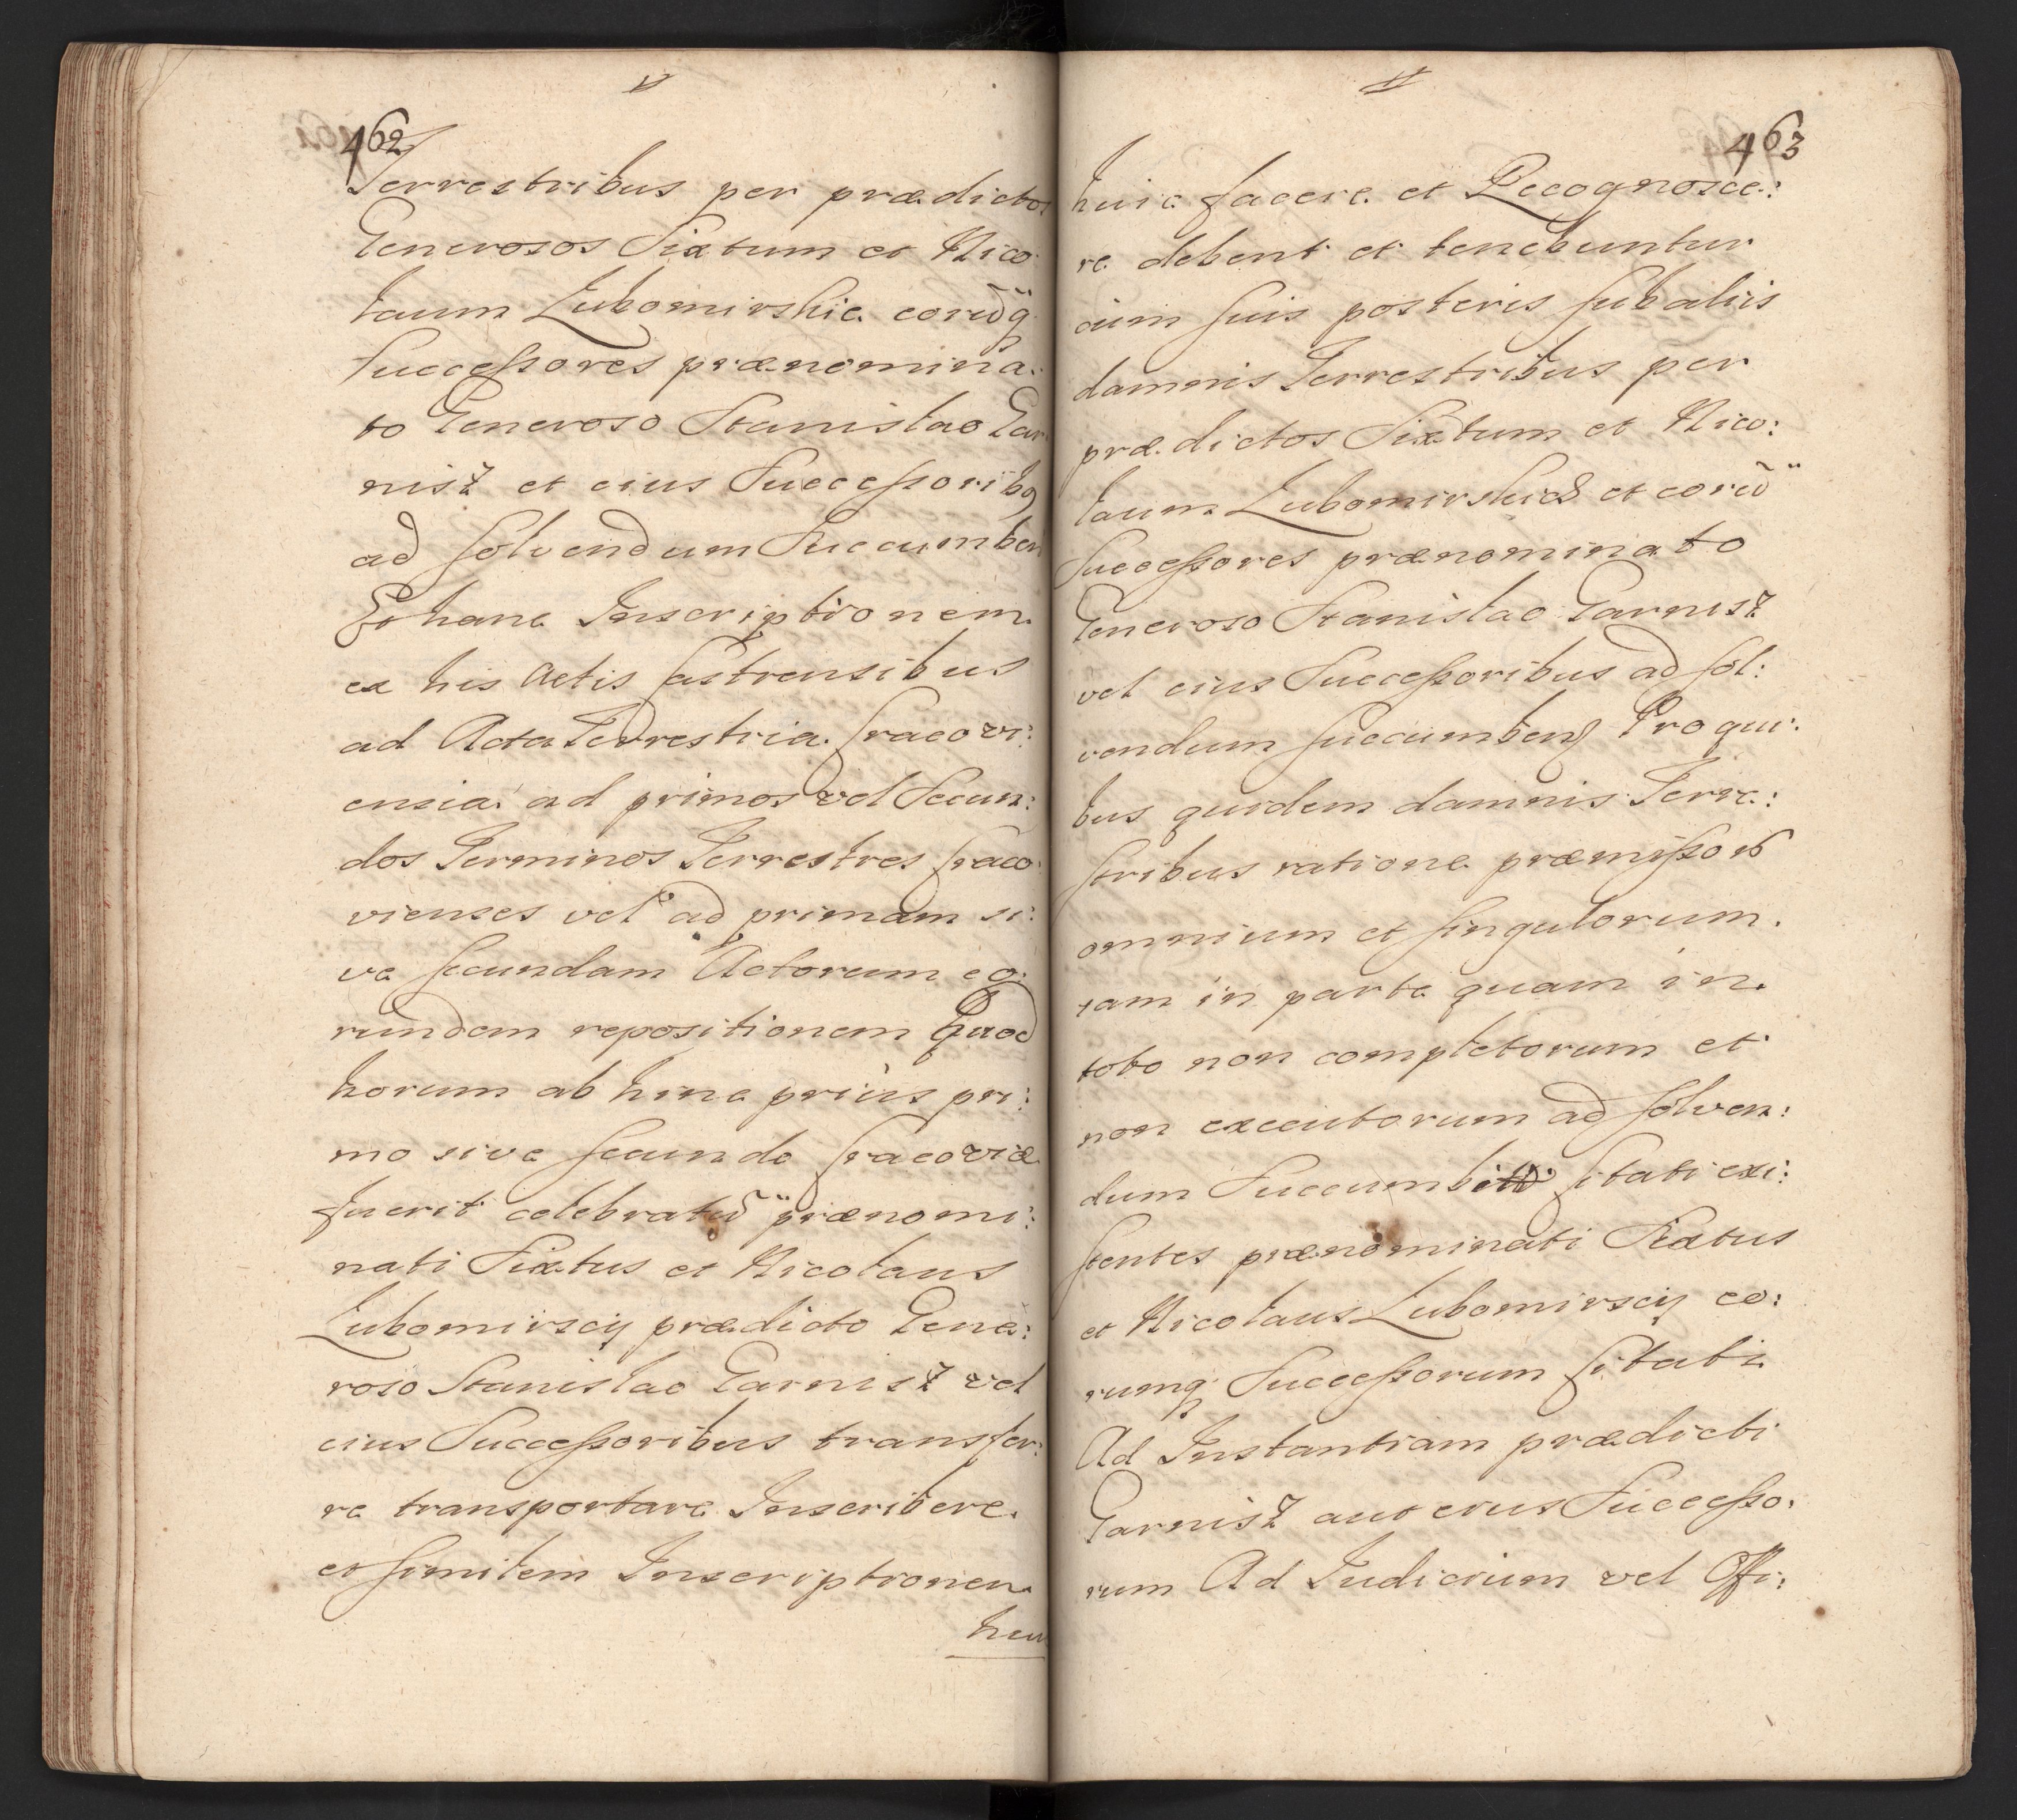 462
Terrestribus per prædictos
Generosos Sixtum et Nico
laum Lubomirskie eorūq
Successores prænomina:
to Generoso Stanislao Gar
nisz et eius Successoribq
ad solvendum Succumben
Et hanc Inscriptionem
ex his Actis Castrensibus
ad Acta Terrestria Cracovi:
ensia ad primos vel Secun:
dos Terminos Terrestres Craco
vienses vel ad primam si:
ve secundam Actorum eo:
rundem repositionem Quod
horum ab hinc prius pri:
mo sive secundo Cracoviæ
fuerit celebratū prænomi:
nati Sixtus et Nicolaus
Lubomirscÿ prædicto Gene:
roso Stanislao Garnisz vel
eius Successoribus transfer:
re transportare Inscribere
et similem Inscriptionem
huic
463
huic facere et Recognosce:
re debent et tenebuntur
cum suis posteris sub aliis
damnis Terrestribus per
prædictos Sixtum et Nico:
laum Lubomirskich et eorū
Successores prænominato
Generoso Stanislao Garnisz
vel eius Successoribus ad sol:
vendum succumben Pro qui:
bus quidem damnis Terre:
stribus ratione præmissorб
omnium et singulorum
tam in parte quam in
toto non completorum et
non executorum ad solven:
dum Citati exi:
stentes prænominati Sixtus
et Nicolaus Lubomirscÿ eo:
rumq Successorum Citati
Ad Instantiam prædicti
Garnisz aut eius Successo:
rum Ad Iudicium vel Offi: